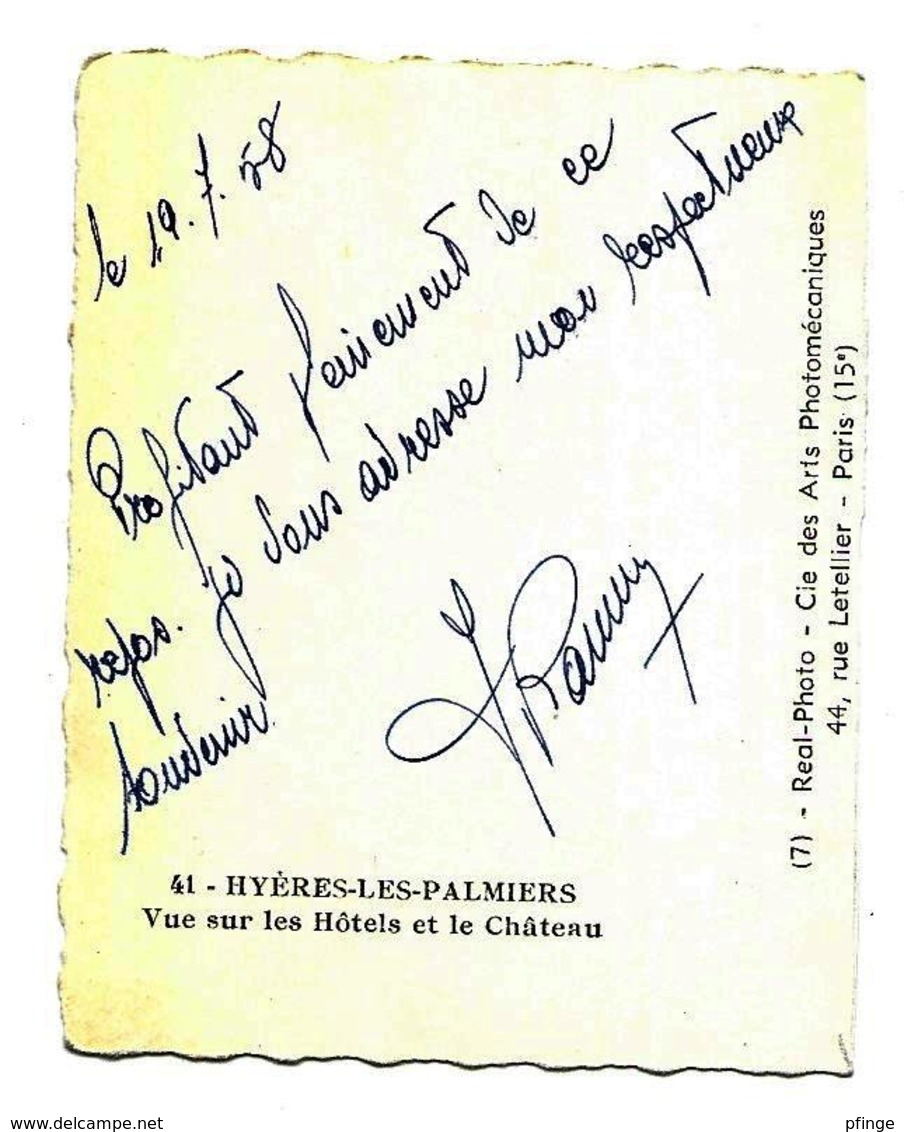 le 19.7.58
Profitant pleinement de ce
repos. je vous adresse mon respectueux
souvenir
41 - HYÈRES-LES-PALMIERS
Vue sur les Hôtels et le Château
(7) - Real-Photo - Cie des Arts Photomécaniques
44, rue Letellier - Paris (15e)
delcampe.net
pfinge